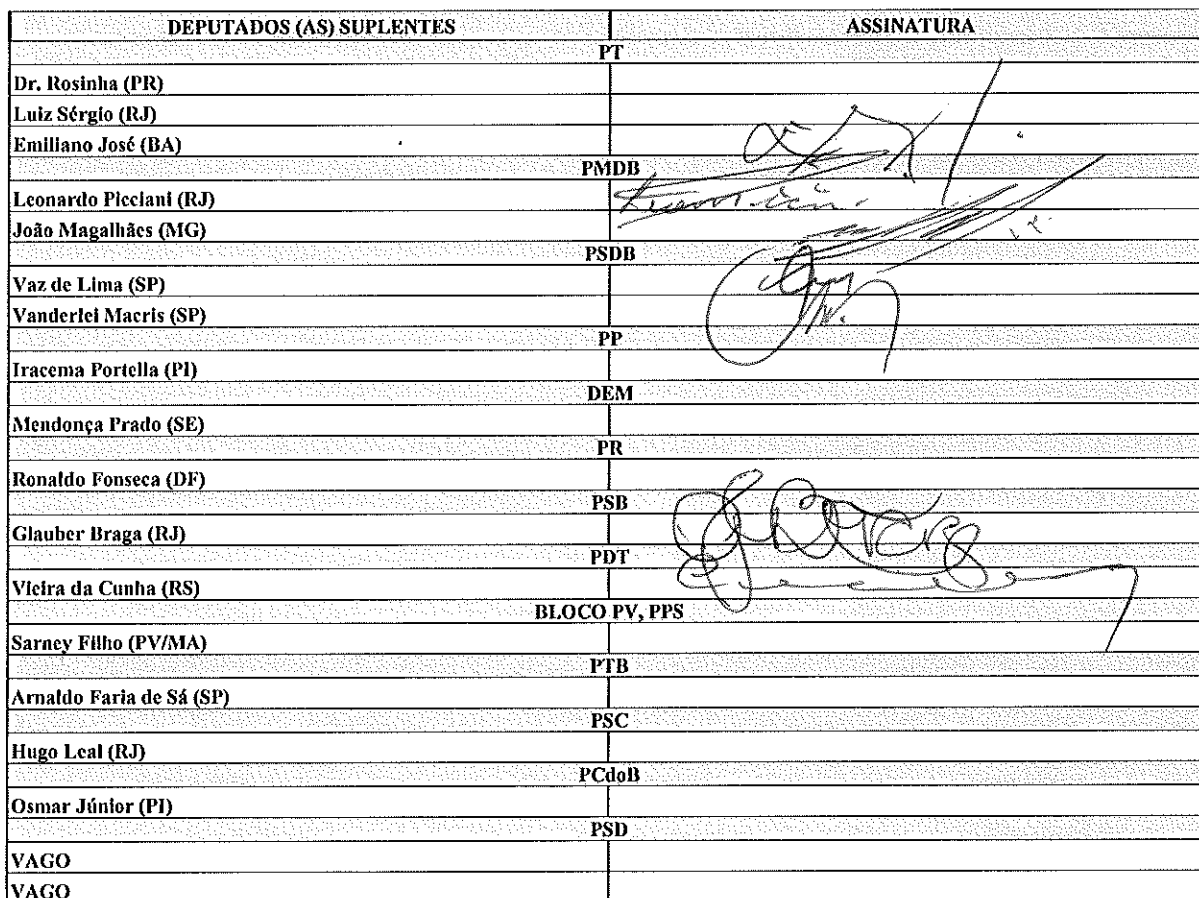 DEPUTADOS (AS) SUPLENTES ASSINATURA
PT
Dr. Rosinha (PR)
Luiz Sérgio (RJ)
Emiliano José (BA)
PMDB
Leonardo Picciani (RJ)
João Magalhães (MG)
PSDB
Vaz de Lima (SP)
Vanderlei Macris (SP)
PP
Iracema Portella (PI)
DEM
Mendonça Prado (SE)
PR
Ronaldo Fonseca (DF)
PSB
Glauber Braga (RJ)
PDT
Vieira da Cunha (RS)
BLOCO PV, PPS
Sarney Filho (PV/MA)
PTB
Arnaldo Faria de Sá (SP)
PSC
Hugo Leal (RJ)
PCdoB
Osmar Júnior (PI)
PSD
VAGO
VAGO